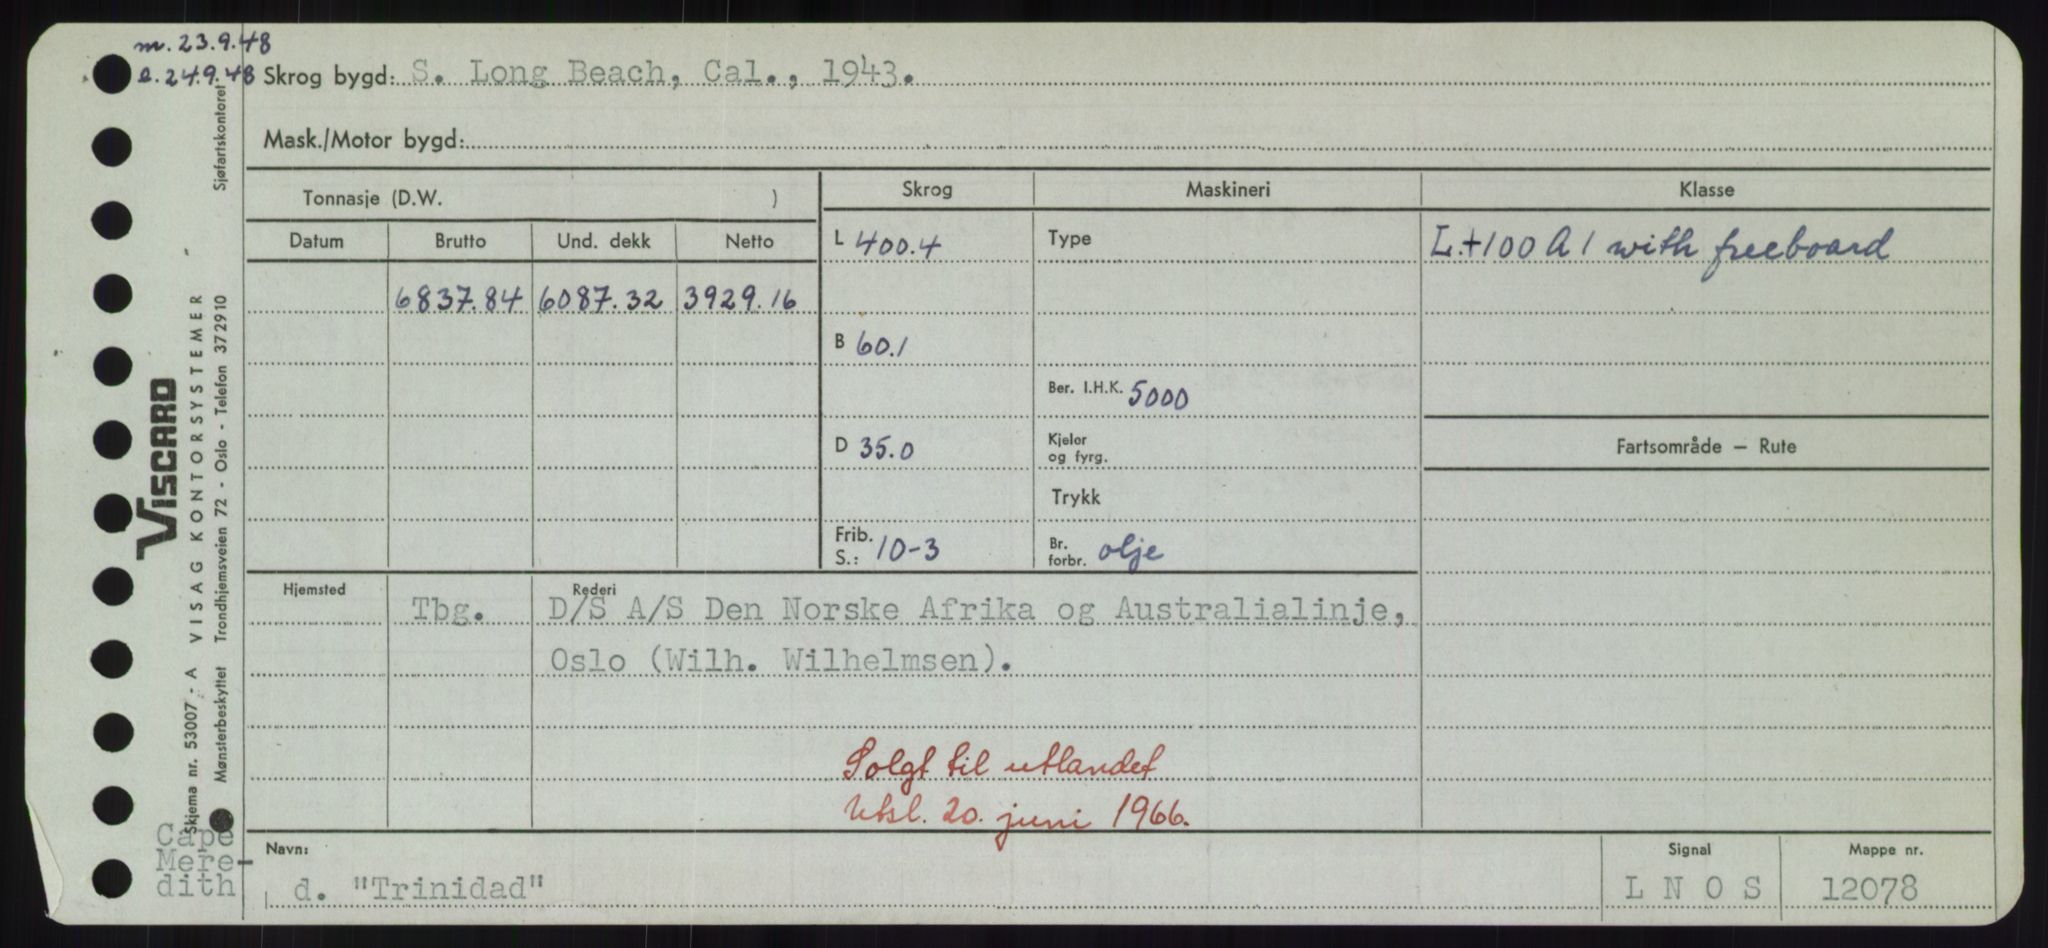 m. 23.9.48
e. 24.9.48 Skrog bygd: S. Long Beach, Cal., 1943.
Mask./Motor bygd:
Tonnasje (D.W. )
Skrog
Maskineri
Klasse
Datum Brutto Und. dekk Netto
L 400.4
Type
L.+100 A 1 with freeboard
6837.84 6087.32 3929.16
B 60.1
Ber. I.H.K. 5000
D 35.0
Kjeler
og fyrg.
Fartsområde — Rute
Trykk
Frib.
S.: 10-3
Br.
forbr. olje
Hjemsted
Rederi
Tbg. D/S A/S Den Norske Afrika og Australialinje,
Oslo (Wilh. Wilhelmsen).
Solgt til utlandet
Utsl. 20. juni 1966.
Cape
Mere-
dith
Navn:
d. "Trinidad"
Signal
L N O S
Mappe nr.
12078
VISCARD
Skjema nr. 53007 - A VISAG KONTORSYSTEMER
Mønsterbeskyttet Trondhjemsveien 72 - Oslo - Telefon 37 29 10 Sjøfartskontoret